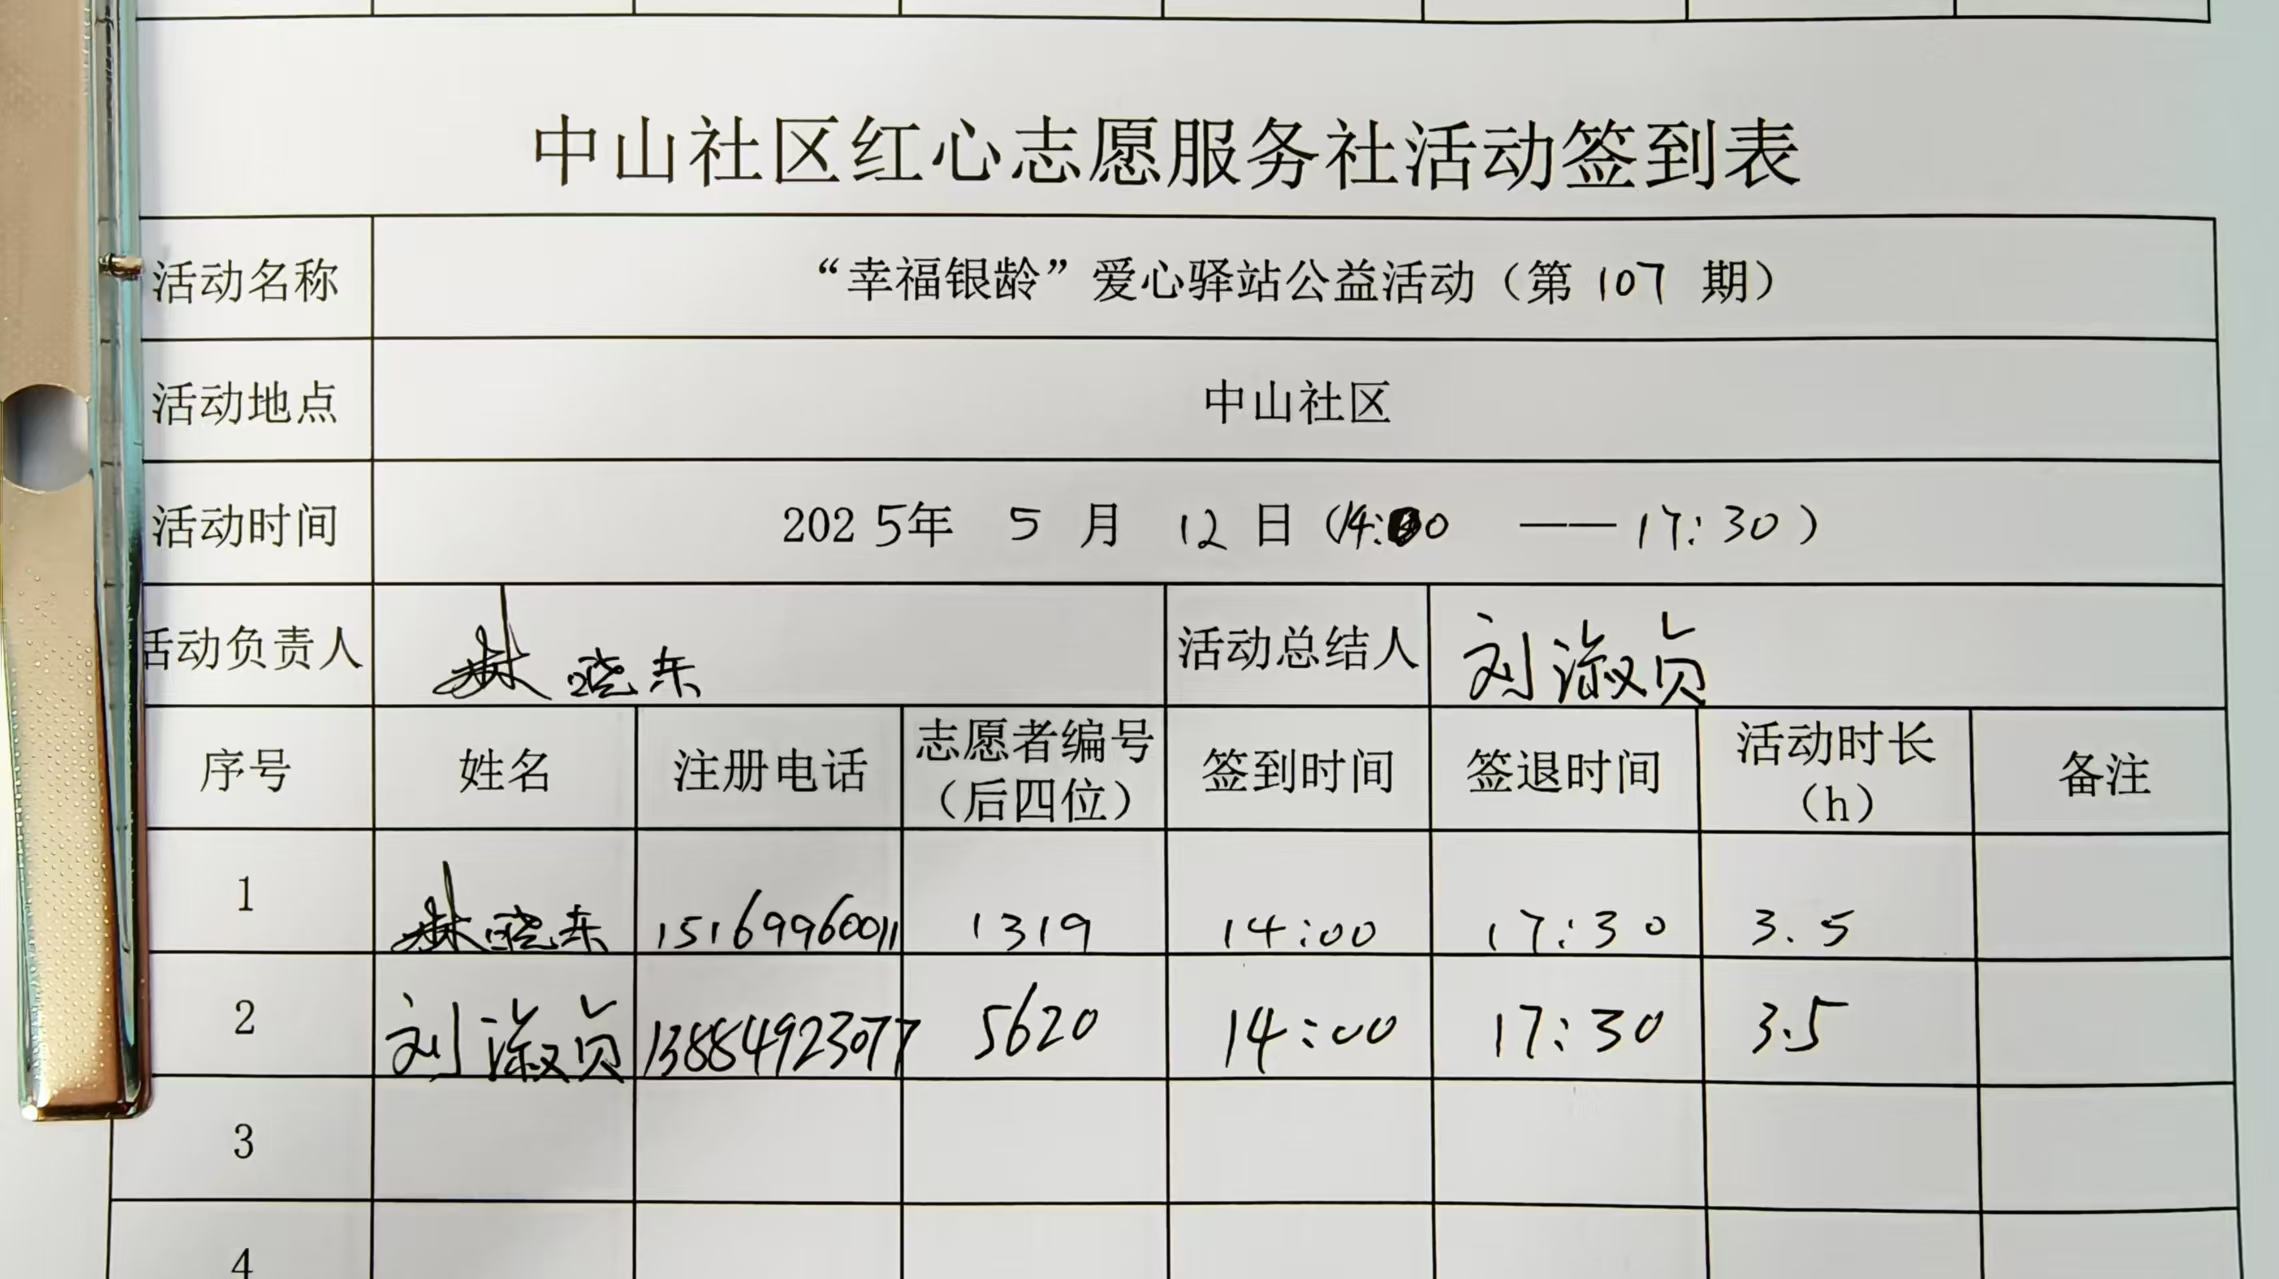 中山社区红心志愿服务社活动签到表
活动名称 “幸福银龄”爱心驿站公益活动（第 107 期）
活动地点 中山社区
活动时间 2025年 5 月 12 日（14:00 —— 17:30）
活动负责人 林晓东 活动总结人 刘淑贞
序号 姓名 注册电话 志愿者编号（后四位） 签到时间 签退时间 活动时长（h） 备注
1 林晓东 15169960011 1319 14:00 17:30 3.5
2 刘淑贞 13884923077 5620 14:00 17:30 3.5
3
4